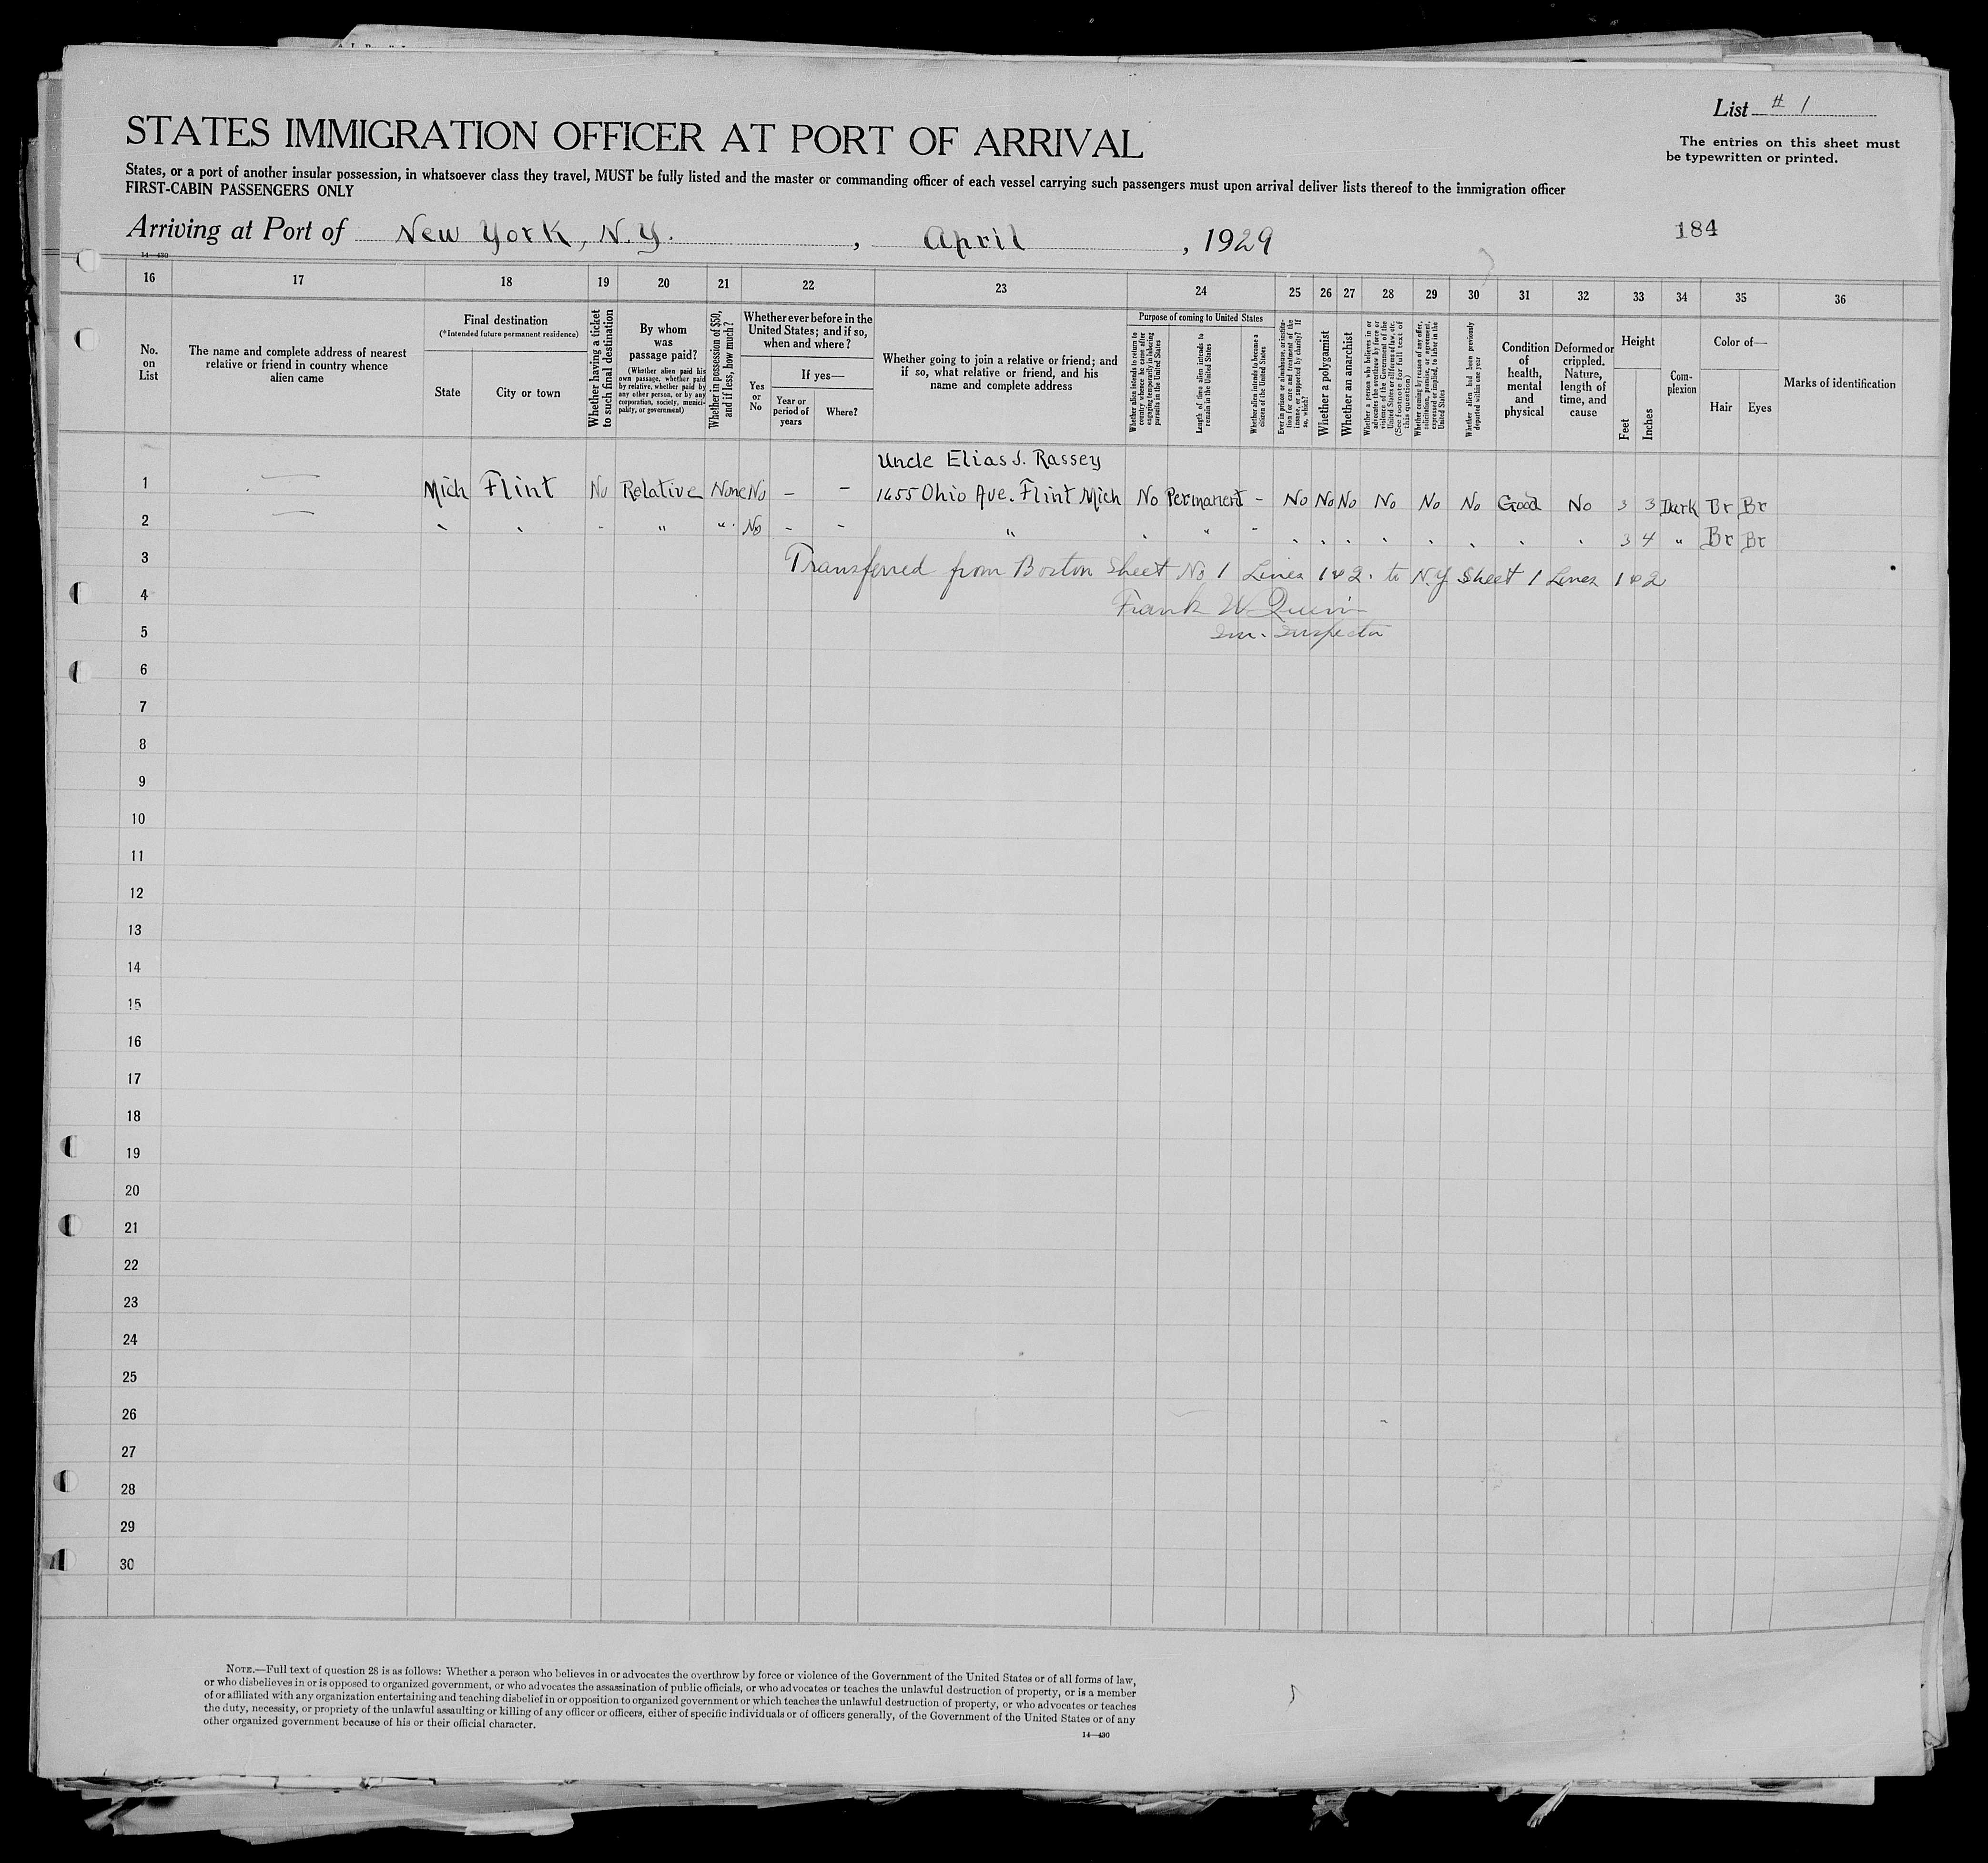 List # 1
STATES IMMIGRATION OFFICER AT PORT OF ARRIVAL
The entries on this sheet must
be typewritten or printed.
States, or a port of another insular possession, in whatsoever class they travel, MUST be fully listed and the master or commanding officer of each vessel carrying such passengers must upon arrival deliver lists thereof to the immigration officer
FIRST-CABIN PASSENGERS ONLY
Arriving at Port of New York, N.Y. , April , 1929
184
14—430
16 17 18 19 20 21 22 23 24 25 26 27 28 29 30 31 32 33 34 35 36
No. on List
The name and complete address of nearest relative or friend in country whence alien came
Final destination
(*Intended future permanent residence)
State
City or town
Whether having a ticket to such final destination
By whom was passage paid?
(Whether alien paid his own passage, whether paid by relative, whether paid by any other person, or by any corporation, society, municipality, or government)
Whether in possession of $50, and if less, how much?
Whether ever before in the United States; and if so, when and where?
Yes or No
If yes—
Year or period of years
Where?
Whether going to join a relative or friend; and if so, what relative or friend, and his name and complete address
Purpose of coming to United States
Whether alien intends to return to country whence he came after engaging temporarily in laboring pursuits in the United States
Length of time alien intends to remain in the United States
Whether alien intends to become a citizen of the United States
Ever in prison or almshouse, or institution for care and treatment of the insane, or supported by charity? If so, which?
Whether a polygamist
Whether an anarchist
Whether a person who believes in or advocates the overthrow by force or violence of the Government of the United States or all forms of law, etc. (See footnote for full text of this question)
Whether coming by reason of any offer, solicitation, promise, or agreement, expressed or implied, to labor in the United States
Whether alien had been previously deported within one year
Condition of health, mental and physical
Deformed or crippled. Nature, length of time, and cause
Height
Feet
Inches
Complexion
Color of—
Hair
Eyes
Marks of identification
Uncle Elias J. Rassey
1 — Mich Flint No Relative None No – – 1655 Ohio Ave. Flint Mich No Permanent – No No No No No No Good No 3 3 Dark Br Br
2 — " " " " " No – – " " " – " " " " " " " " 3 4 " Br Br
3 Transferred from Boston Sheet No 1 Lines 1 & 2. to N.Y Sheet 1 Lines 1 & 2
4 Frank W Quinn
5 Im. Inspector
6
7
8
9
10
11
12
13
14
15
16
17
18
19
20
21
22
23
24
25
26
27
28
29
30
NOTE.—Full text of question 28 is as follows: Whether a person who believes in or advocates the overthrow by force or violence of the Government of the United States or of all forms of law,
or who disbelieves in or is opposed to organized government, or who advocates the assassination of public officials, or who advocates or teaches the unlawful destruction of property, or is a member
of or affiliated with any organization entertaining and teaching disbelief in or opposition to organized government or which teaches the unlawful destruction of property, or who advocates or teaches
the duty, necessity, or propriety of the unlawful assaulting or killing of any officer or officers, either of specific individuals or of officers generally, of the Government of the United States or of any
other organized government because of his or their official character.
14—430